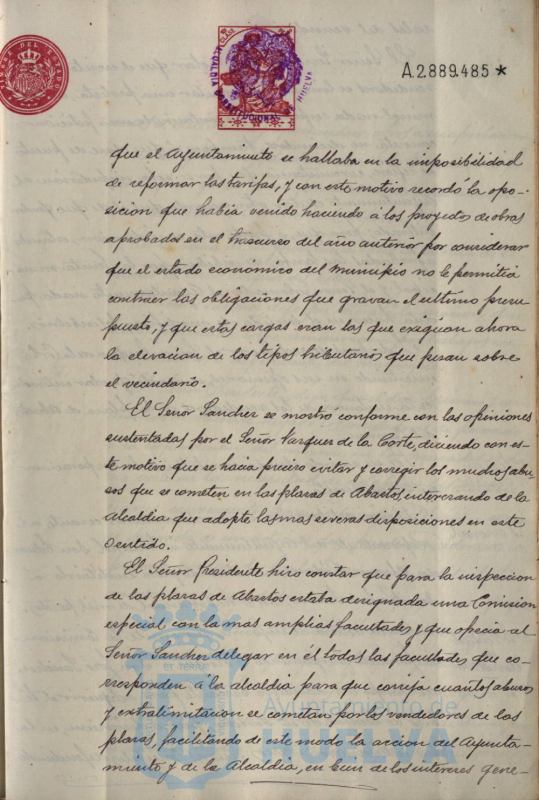 A.2.889.485 *
ALCALDIA CONSTITUCIONAL
HUELVA
que el Ayuntamiento se hallaba en la imposibilidad
de reformar las tarifas, y con este motivo recordó la opo-
sicion que habia venido haciendo á los proyectos de obras
aprobados en el trascurso del año anterior por considerar
que el estado económico del Municipio no le permitia
contraer las obligaciones que gravan el ultimo presu
puesto, y que estas cargas eran las que exigian ahora
la elevacion de los tipos tributarios que pesan sobre
el vecindario.
El Señor Sanchez se mostró conforme con las opiniones
sustentadas por el Señor Vazquez de la Corte, diciendo con es-
te motivo que se hacia preciso evitar y corregir los muchos abu-
sos que se cometen en las plazas de Abastos, interesando de la
Alcaldia que adopte las mas severas disposiciones en este
sentido.
El Señor Presidente hizo constar que para la inspeccion
de las plazas de Abastos estaba designada una Comision
especial con las mas amplias facultades y que ofrecia al
Señor Sanchez delegar en él todas las facultades que co-
rresponden á la alcaldia para que corrija cuantos abusos
y extralimitacion se cometan por los vendedores de las
plazas, facilitando de este modo la accion del Ayunta-
miento y de la Alcaldia, en bien de los intereses gene-
Ayuntamiento de
HUELVA